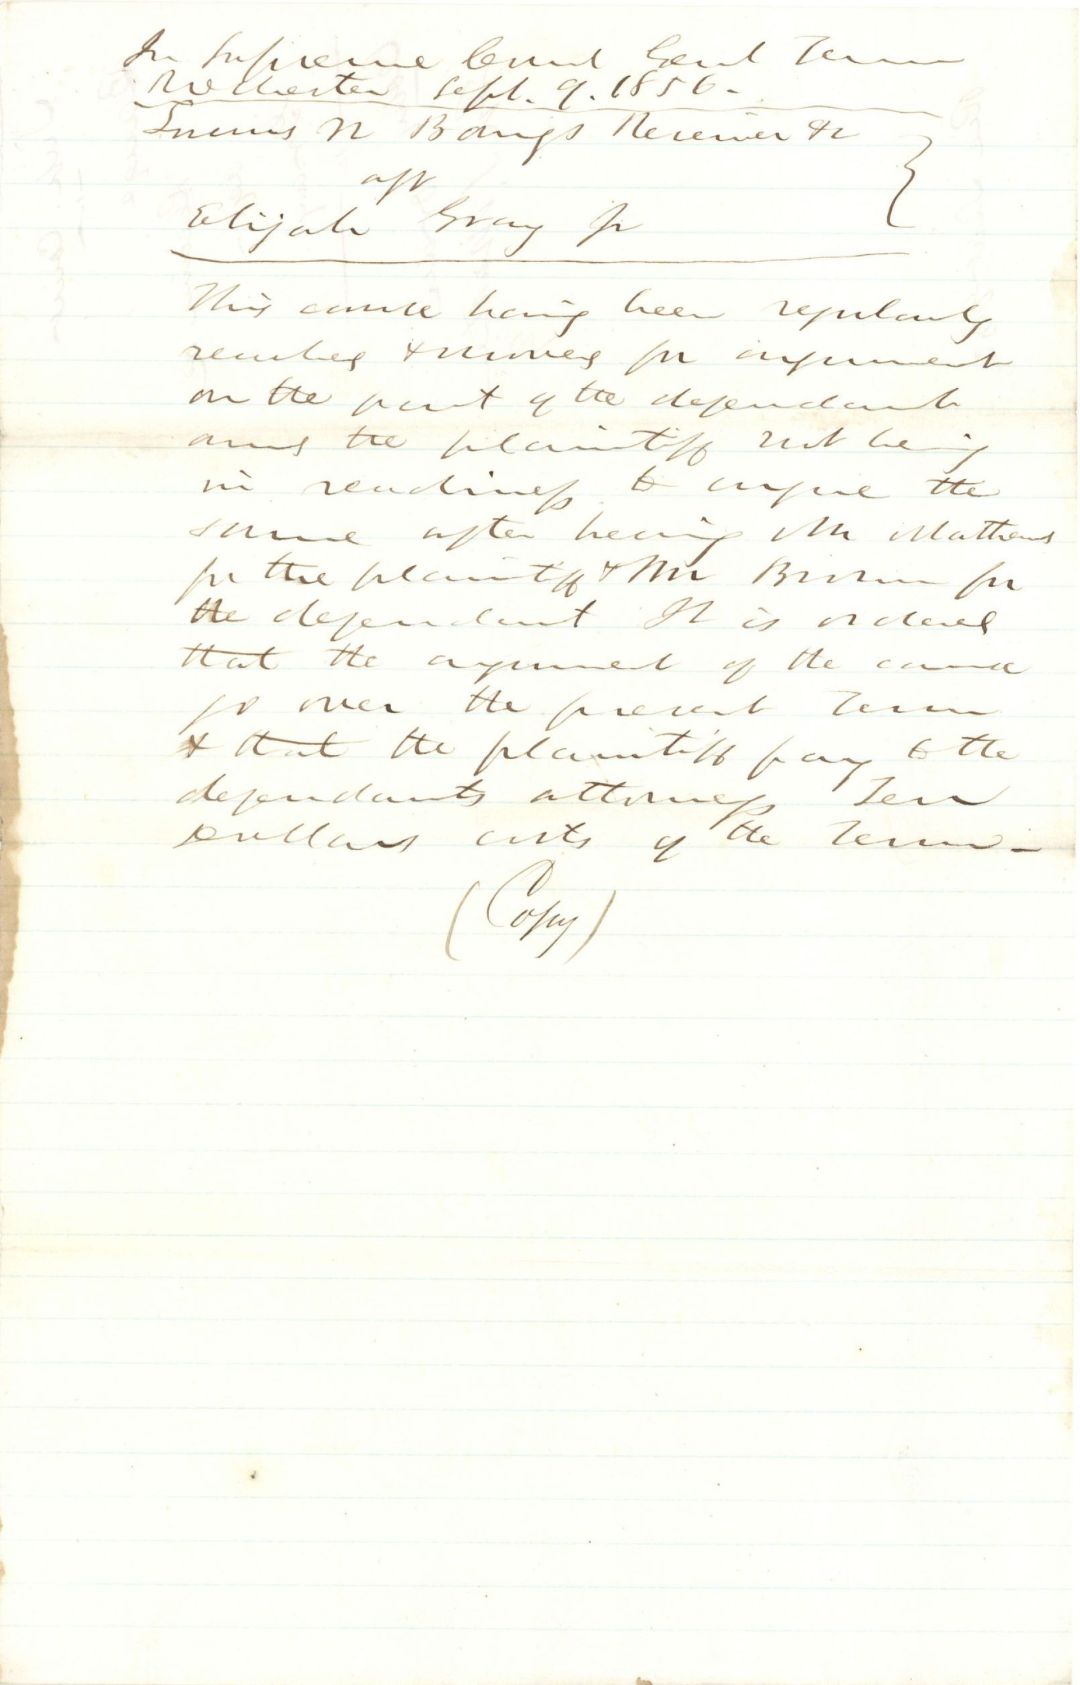 In Supreme Court Genl Term
Rochester Sept. 9. 1856.
N Receiver &c
agt
Elijah Gray Jr
This cause having been regularly
reached & moved for argument
on the part of the defendant
and the plaintiff not being
in readiness to argue the
same after hearing Mr Mathews
for the plaintiff & Mr Brown for
the defendant It is ordered
that the argument of the cause
go over the present Term
& that the plaintiff pay to the
defendants attorneys Ten
Dollars costs of the Term –
(Copy)